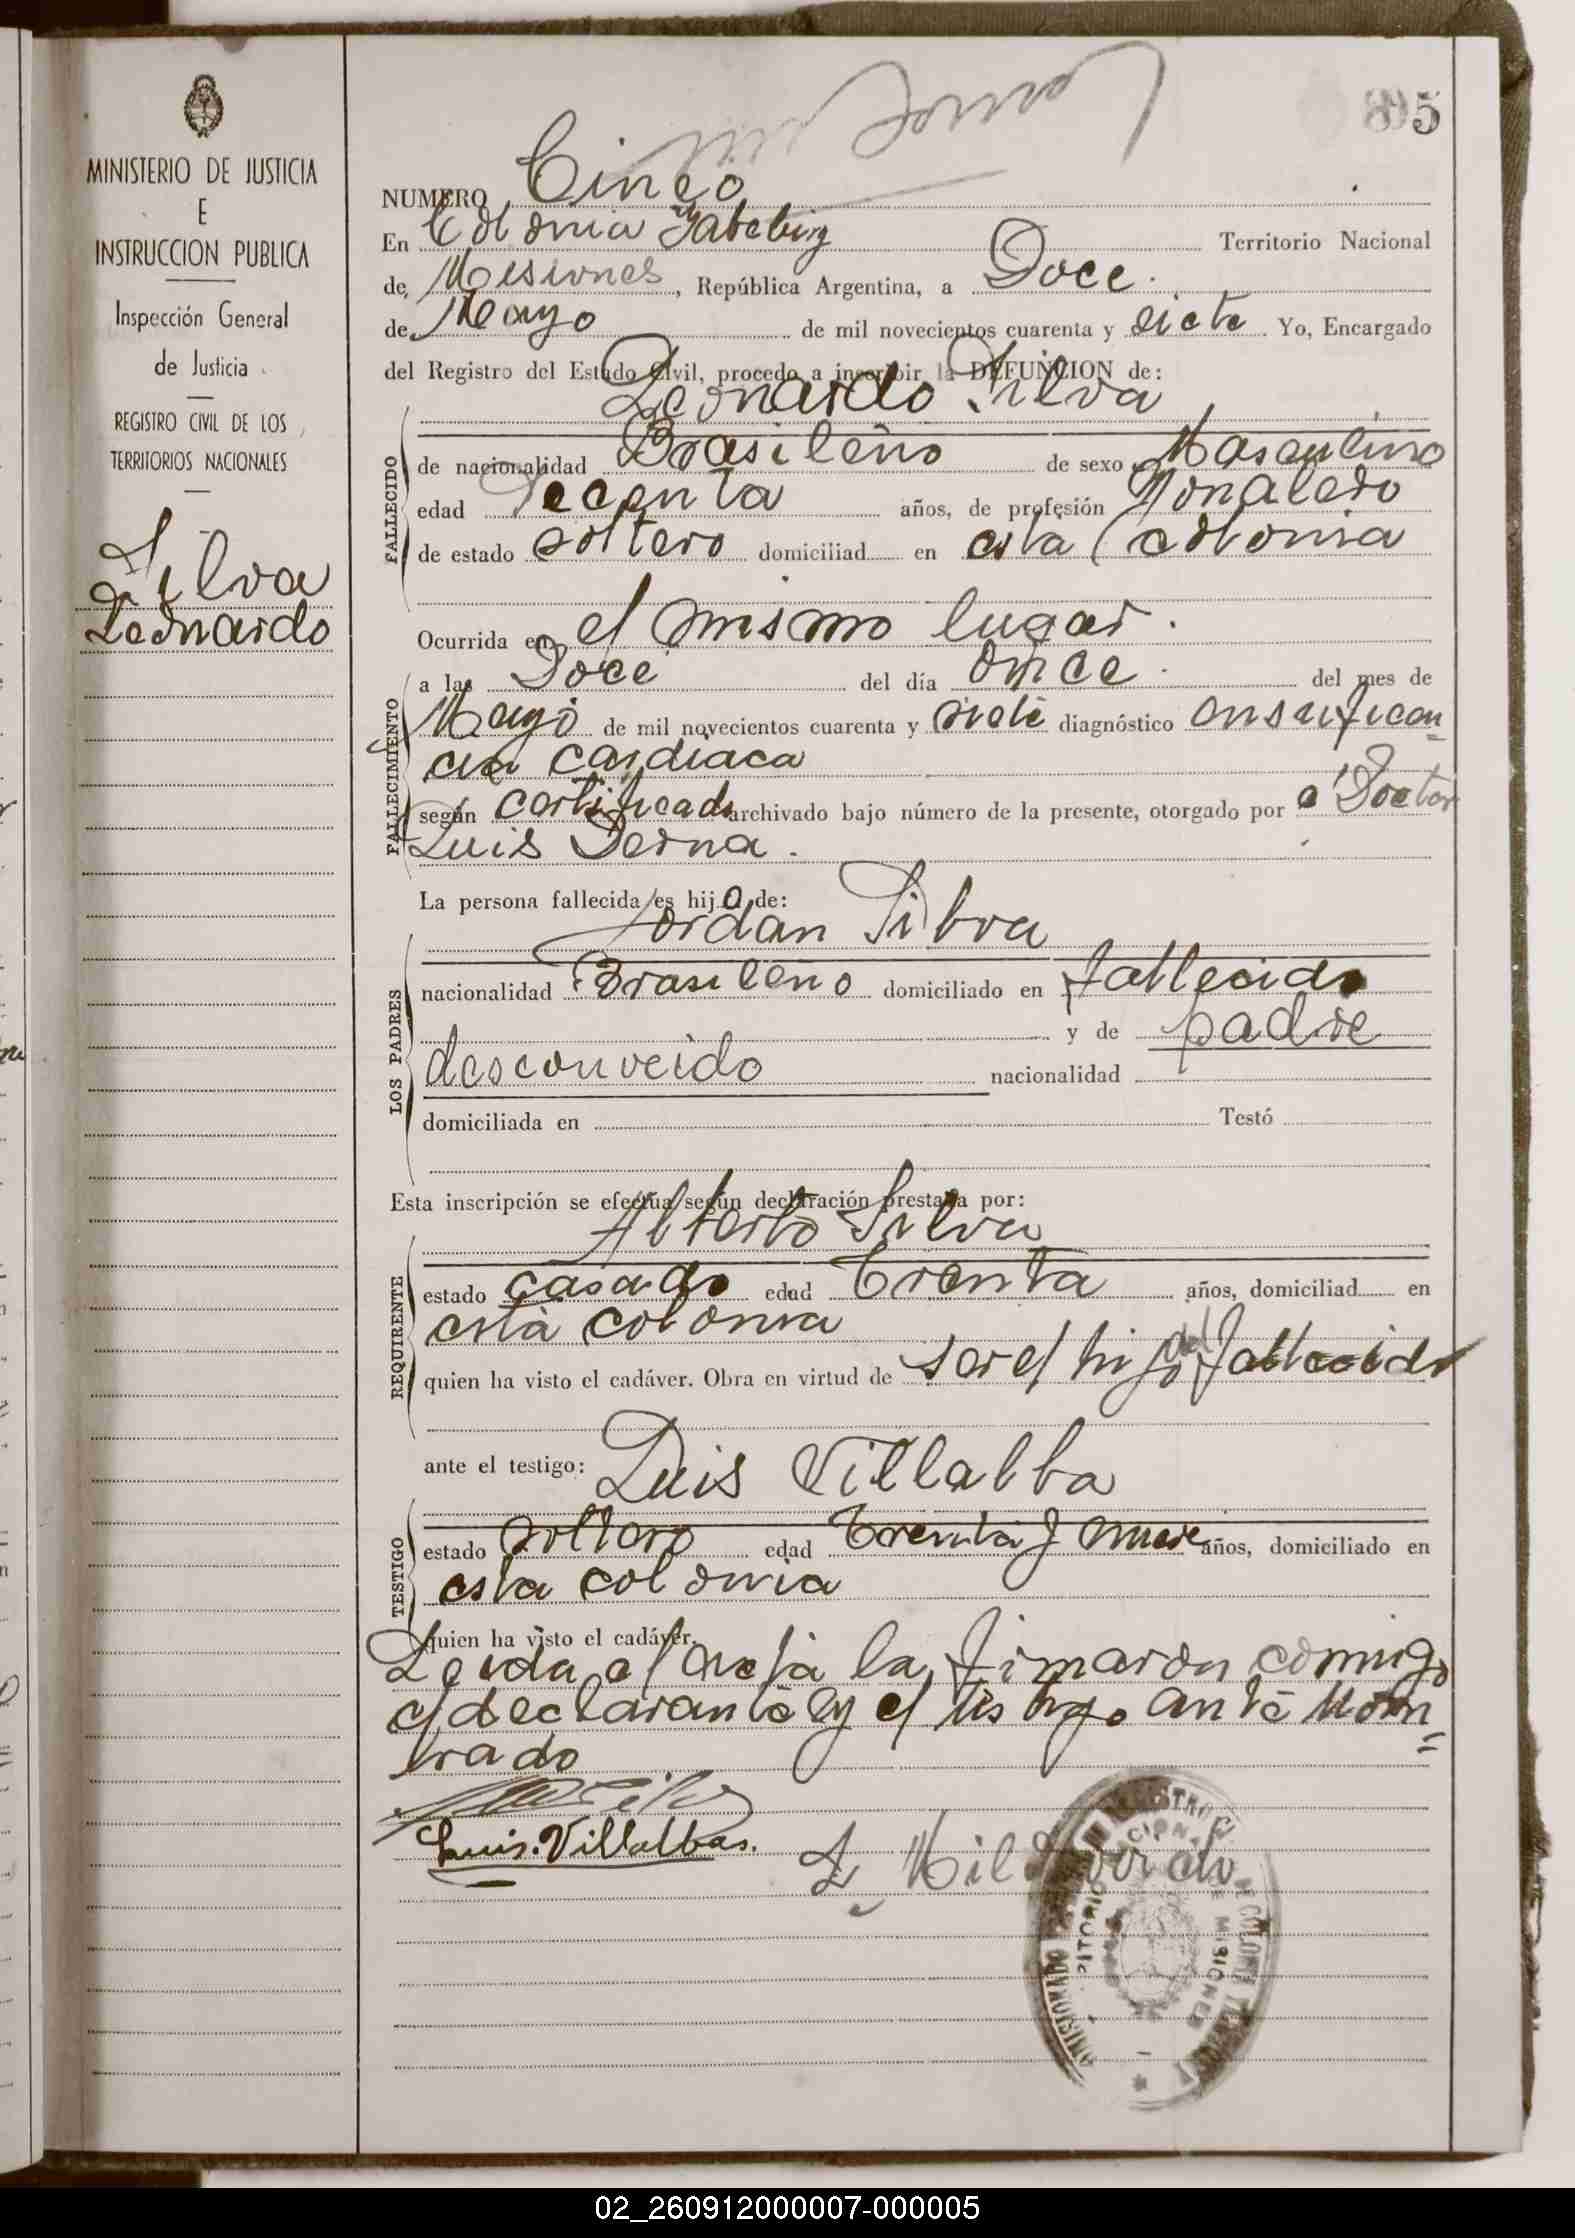 MINISTERIO DE JUSTICIA
E
INSTRUCCION PUBLICA
Inspección General
de Justicia
REGISTRO CIVIL DE LOS
TERRITORIOS NACIONALES
Silva
Leonardo
5
NUMERO Cinco
En Colonia Yabebiry Territorio Nacional
de Misiones, República Argentina, a Doce
de Mayo de mil novecientos cuarenta y siete Yo, Encargado
del Registro del Estado Civil, procedo a inscribir la DEFUNCION de:
Leonardo Silva
FALLECIDO
de nacionalidad Brasileño de sexo Masculino
edad años, de profesión Jornalero
de estado soltero domiciliad en esta Colonia
Ocurrida en el mismo lugar.
FALLECIMIENTO
a las Doce del día once del mes de
Mayo de mil novecientos cuarenta y siete diagnóstico insuficen=
cia cardiaca
según certificado archivado bajo número de la presente, otorgado por el Doctor
Luis
La persona fallecida es hijo de:
LOS PADRES
Jordan Silva
nacionalidad Brasileño domiciliado en fallecido
y de padre
desconocido nacionalidad
domiciliada en Testó
Esta inscripción se efectúa según declaración prestada por:
REQUIRENTE
Alberto Silva
estado casado edad Trenta años, domiciliad en
esta colonia
quien ha visto el cadáver. Obra en virtud de ser el hijo del fallecido
ante el testigo: Luis Villalba
TESTIGO
estado soltero edad Trenta y nueve años, domiciliado en
esta colonia
quien ha visto el cadáver.
Leida el acta la firmaron comigo
el declarante y el testigo ante nom=
brado
Luis. Villalbas.
MISIONES
02_260912000007-000005